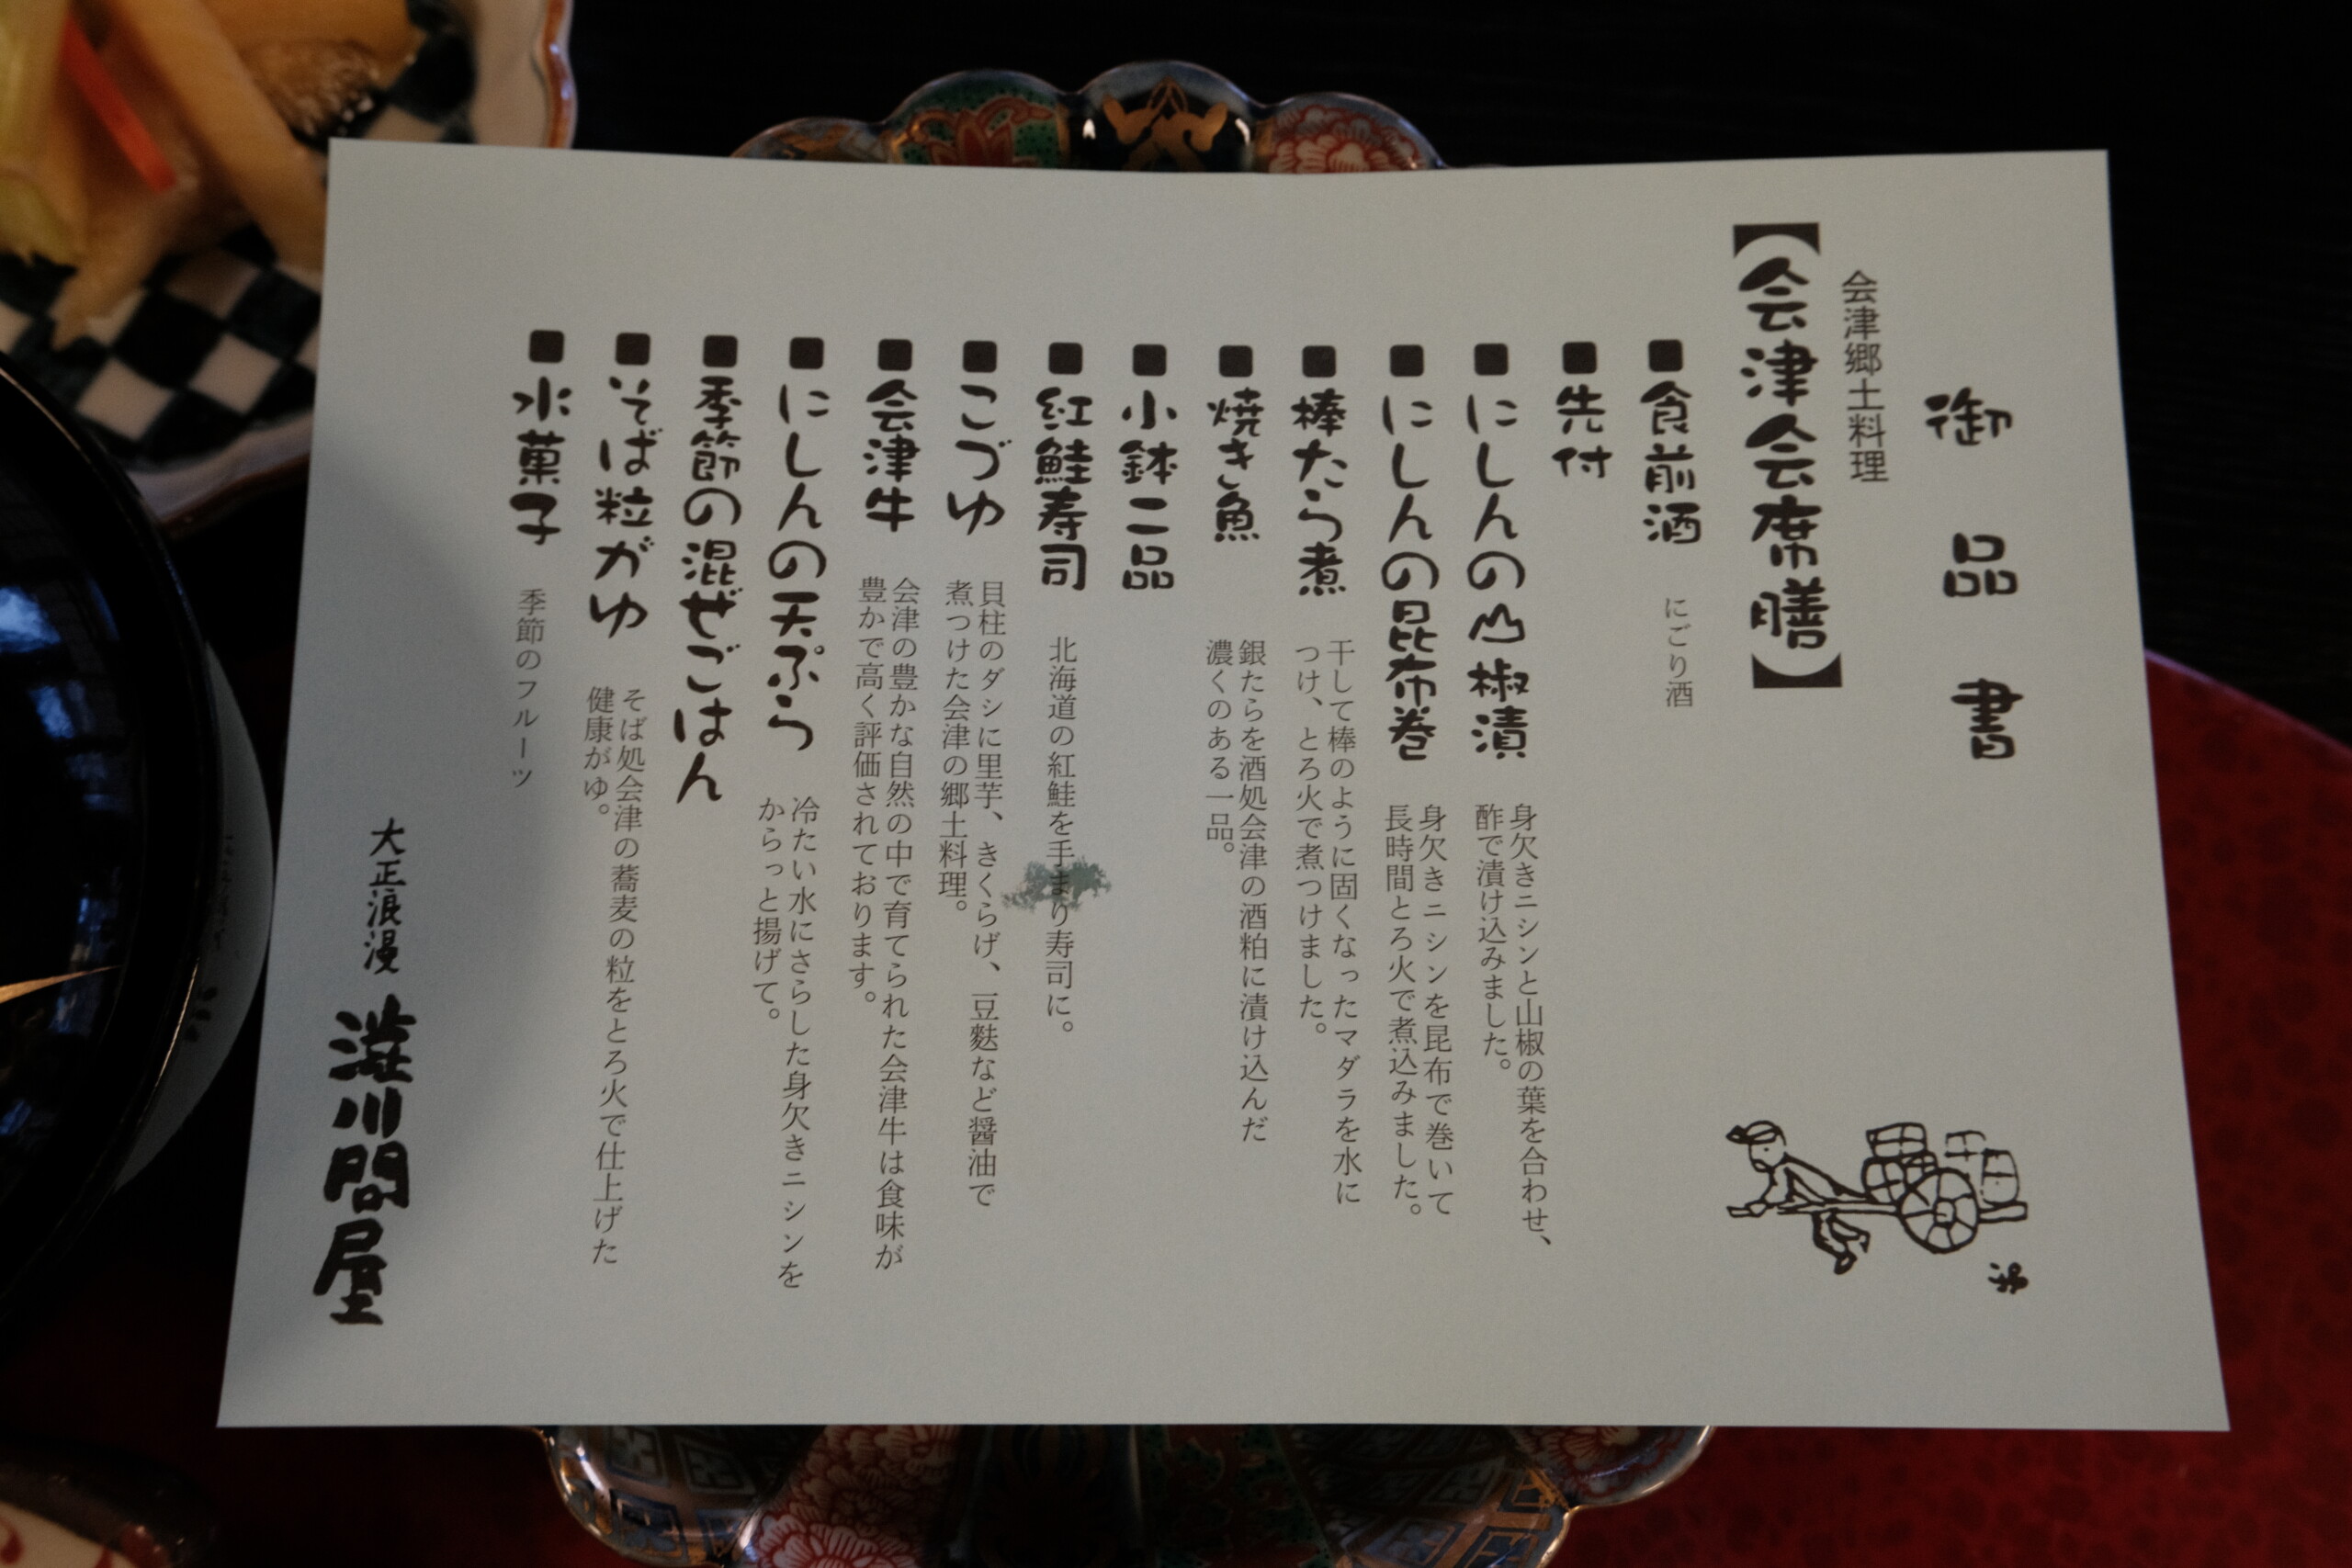 御品書
会津郷土料理
【会津会席膳】
■食前酒
にごり酒
■先付
■にしんの山椒漬
身欠きニシンと山椒の葉を合わせ、
酢で漬け込みました。
■にしんの昆布巻
身欠きニシンを昆布で巻いて
長時間とろ火で煮込みました。
■棒たら煮
干して棒のように固くなったマダラを水に
つけ、とろ火で煮つけました。
■焼き魚
銀たらを酒処会津の酒粕に漬け込んだ
濃くのある一品。
■小鉢二品
■紅鮭寿司
北海道の紅鮭を手まり寿司に。
■こづゆ
貝柱のダシに里芋、きくらげ、豆麩など醤油で
煮つけた会津の郷土料理。
■会津牛
会津の豊かな自然の中で育てられた会津牛は食味が
豊かで高く評価されております。
■にしんの天ぷら
冷たい水にさらした身欠きニシンを
からっと揚げて。
■季節の混ぜごはん
■そば粒がゆ
そば処会津の蕎麦の粒をとろ火で仕上げた
健康がゆ。
■水菓子
季節のフルーツ
大正浪漫
渋川問屋